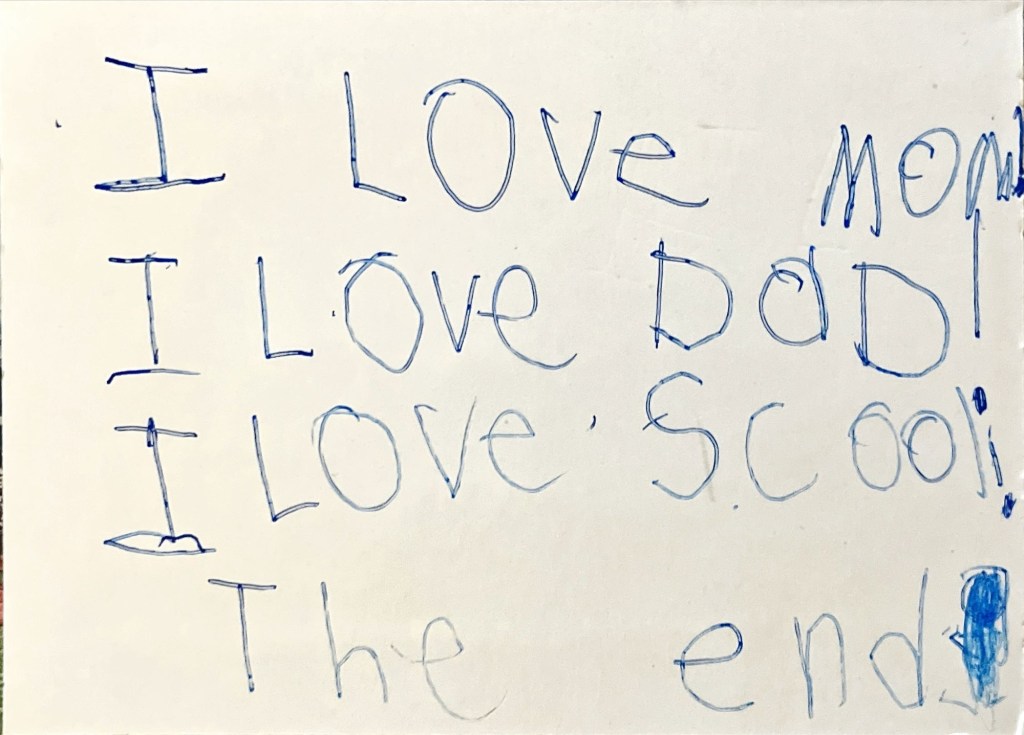 I LOVe MOM!
I LOVe DaD!
I LOVe SCOOl!
The end!